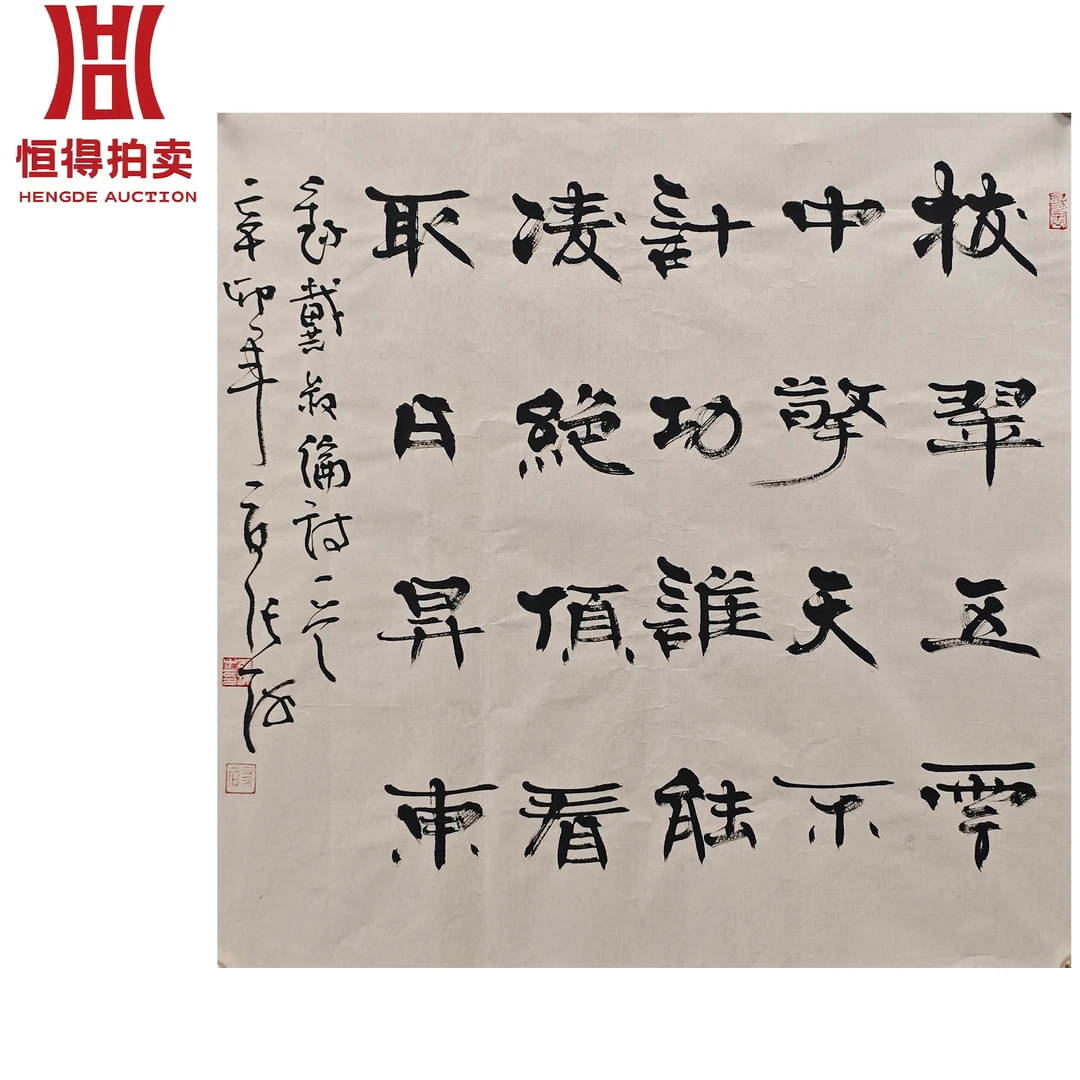 恒得拍卖
HENGDE AUCTION
拔翠五雲
中擎天不
計功誰能
凌絕頂看
取日昇東
錄戴叔倫詩一首
辛卯年夏張